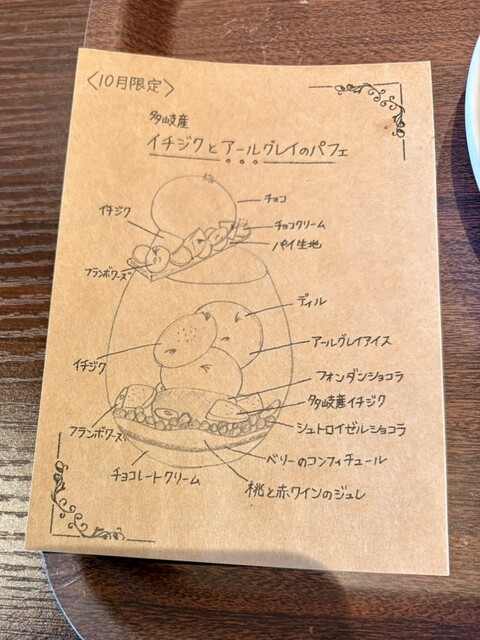 〈10月限定〉
多岐産
イチジクとアールグレイのパフェ
チョコ
イチジク
チョコクリーム
パイ生地
フランボワーズ
ディル
アールグレイアイス
イチジク
フォンダンショコラ
多岐産イチジク
フランボワーズ
シュトロイゼルショコラ
ベリーのコンフィチュール
チョコレートクリーム
桃と赤ワインのジュレ